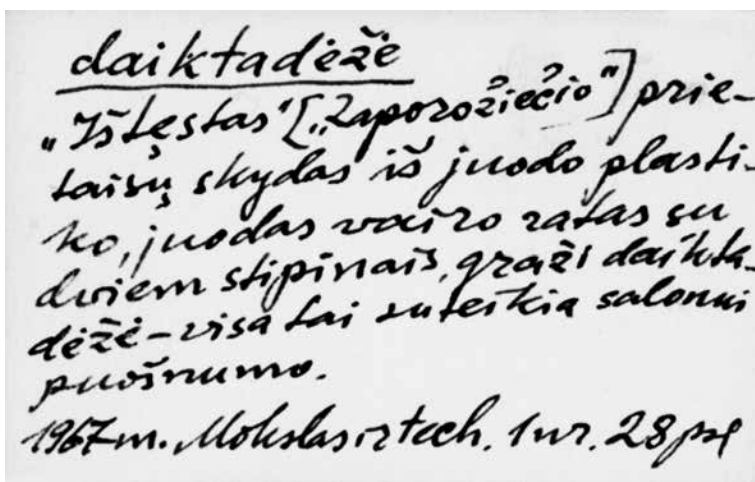 daiktadėžė
„Ištęstas“ [„Zaporožiečio“] prie-
taisų skydas iš juodo plasti-
ko, juodas vairo ratas su
dviem stipinais, graži daikta-
dėžė – visa tai suteikia salonui
puošnumo.
1967 m. Mokslas ir tech. 1 nr. 28 psl